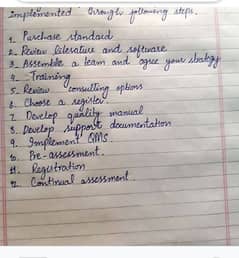 Implemented through following steps.
1. Purchase standard
2. Review literature and software
3. Assemble a team and agree your strategy
4. Training
5. Review consulting options
6. Choose a register.
7. Develop quality manual
8. Develop support documentation
9. Implement QMS.
10. Pre-assessment.
11. Registration
12. Continual assessment